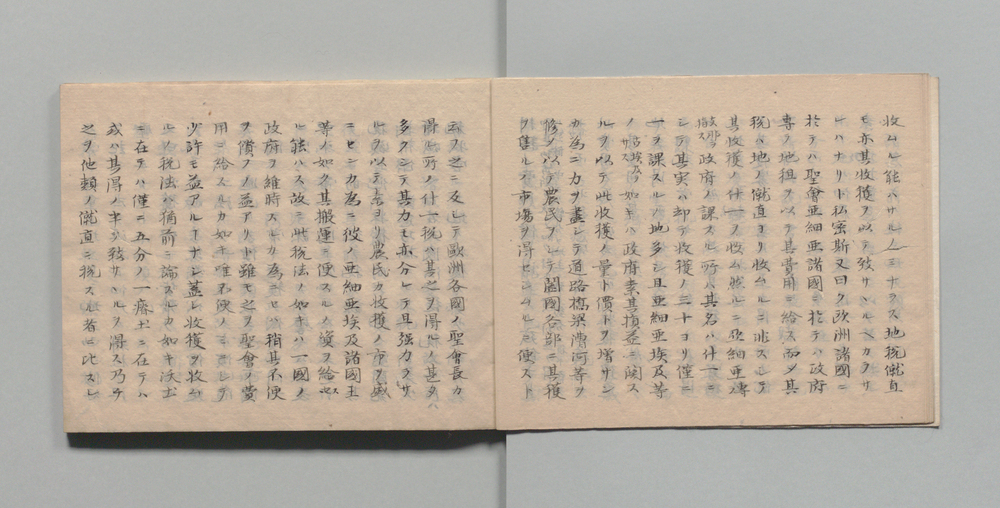 收ムル能ハサル人ニナラス地稅僦直
モ亦其收獲ヲ以テ致サシムヘカラサ
ルハナリト仏密斯又曰ク欧洲諸國ニ
於テハ聖會亜細亜諸國ニ於テハ政府
専ラ地租ヲ以テ其費用ニ給ス而シ其
稅ハ地ノ僦直ヨリ收ムルニ非スシテ
其收獲ノ什一ヲ收ム然ルニ亜細亜
政府ノ課スル所ハ其名ハ什一ニ
シテ其実ハ却テ收獲ノ三十ヨリ僅ニ
一ヲ課スルノ地多シ且亜細亜埃及等
ノ如キハ政府素其損益ニ関ス
ルヲ以テ此收獲ノ量ト價トヲ増サン
カ為ニ力ヲ盡シテ道路橋梁漕河等ヲ
修メ以テ農民ヲシテ闔國各部ニ其獲
ヲ售ルノ市場ヲ得セシムルニ便スト
云フ之ニ反シテ歐洲各國ノ聖會長カ
得ル所ノ什一稅ハ甚之ヲ得ルノ甚タ
多クシテ其力モ亦分レテ且強カラサ
ルヲ以テ古ヨリ農民カ收獲ノ市ヲ盛
ニセンカ為ニ彼ノ亜細亜埃及諸國主
等ノ如ク其搬運ニ便スルノ資ヲ給セ
ル能ハス故ニ此稅法ノ如キハ一國ノ
政府ヲ維時スルカ為ニセハ稍其不便
ヲ償フノ益アリト雖モ之ヲ聖會ノ費
用ニ給スルカ如キ唯不便ノミニシテ
少許モ益アルコナシ蓋シ收獲ヲ收ム
ルノ稅法ハ猶前ニ論スルカ如キ沃土
ニ在テハ僅ニ五分ノ一瘠土ニ在テハ
或ハ其得ノ半ヲ致サヽルヲ得ス乃チ
之ヲ他類ノ僦直ニ稅スル者ニ比スレ